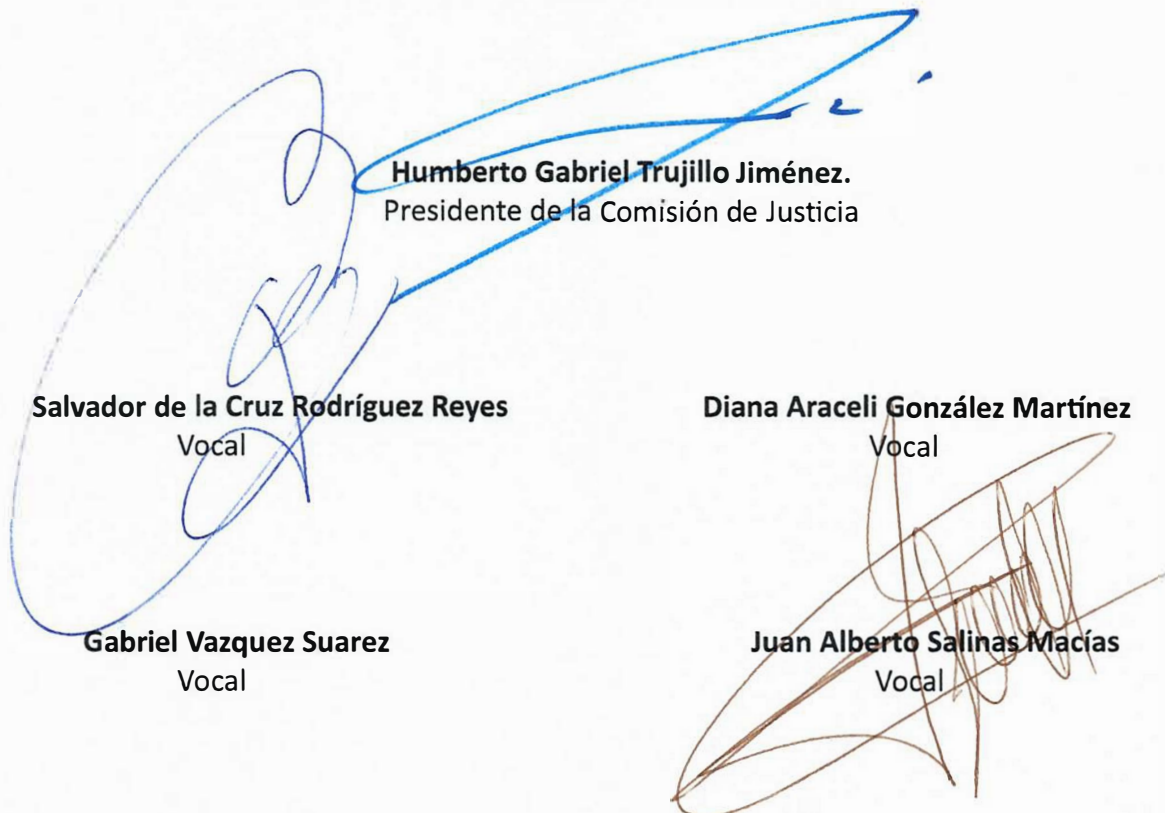 Humberto Gabriel Trujillo Jiménez.
Presidente de la Comisión de Justicia
Salvador de la Cruz Rodríguez Reyes
Vocal
Diana Araceli González Martínez
Vocal
Gabriel Vazquez Suarez
Vocal
Juan Alberto Salinas Macías
Vocal